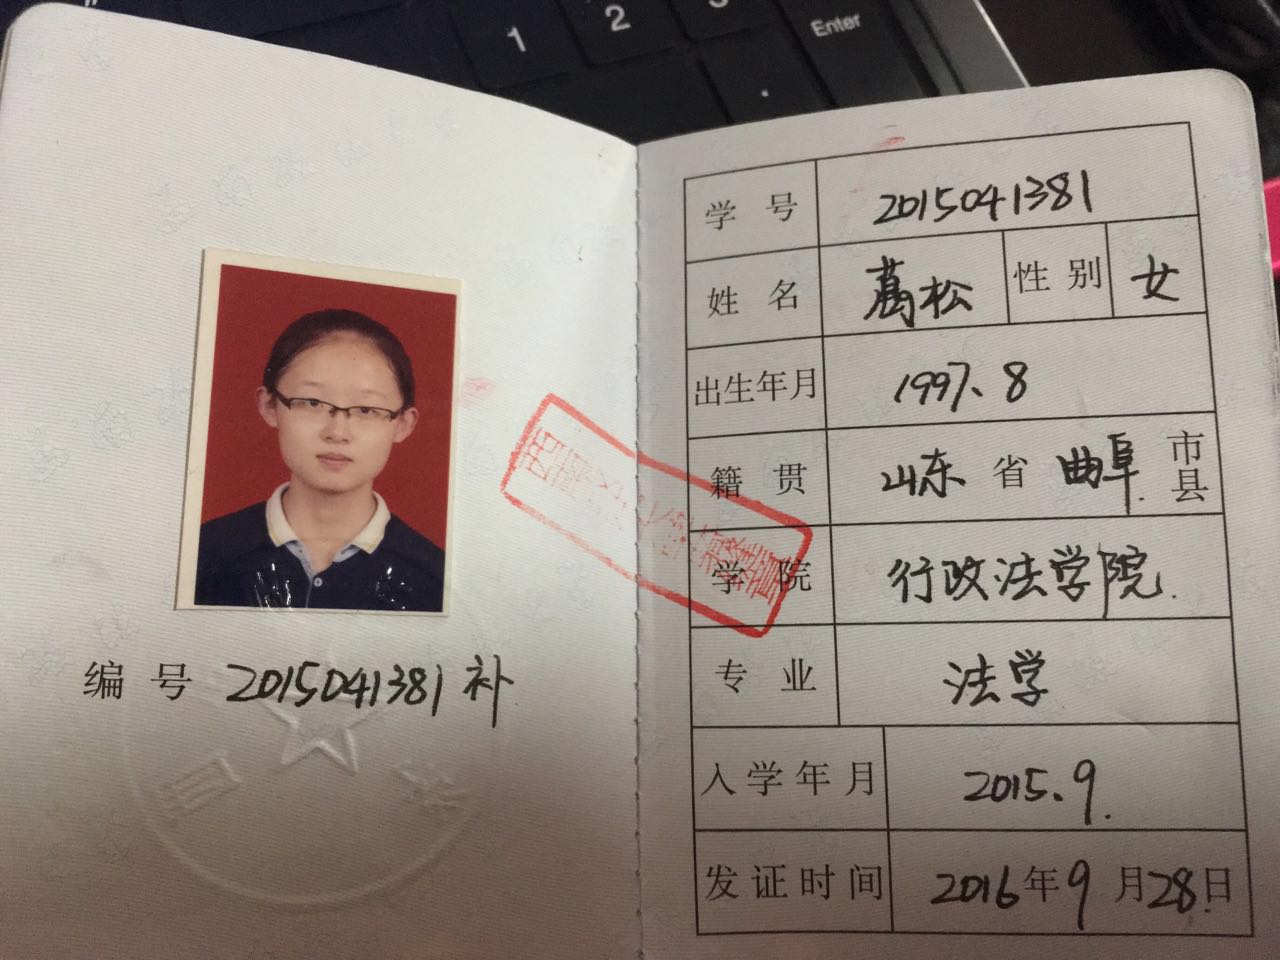 1
2
3
Enter
.
编号 2015041381补
学号 2015041381
姓名 葛松 性别 女
出生年月 1997.8
籍贯 山东省曲阜.市县
学院 行政法学院.
专业 法学
入学年月 2015.9.
发证时间 2016年9月28日